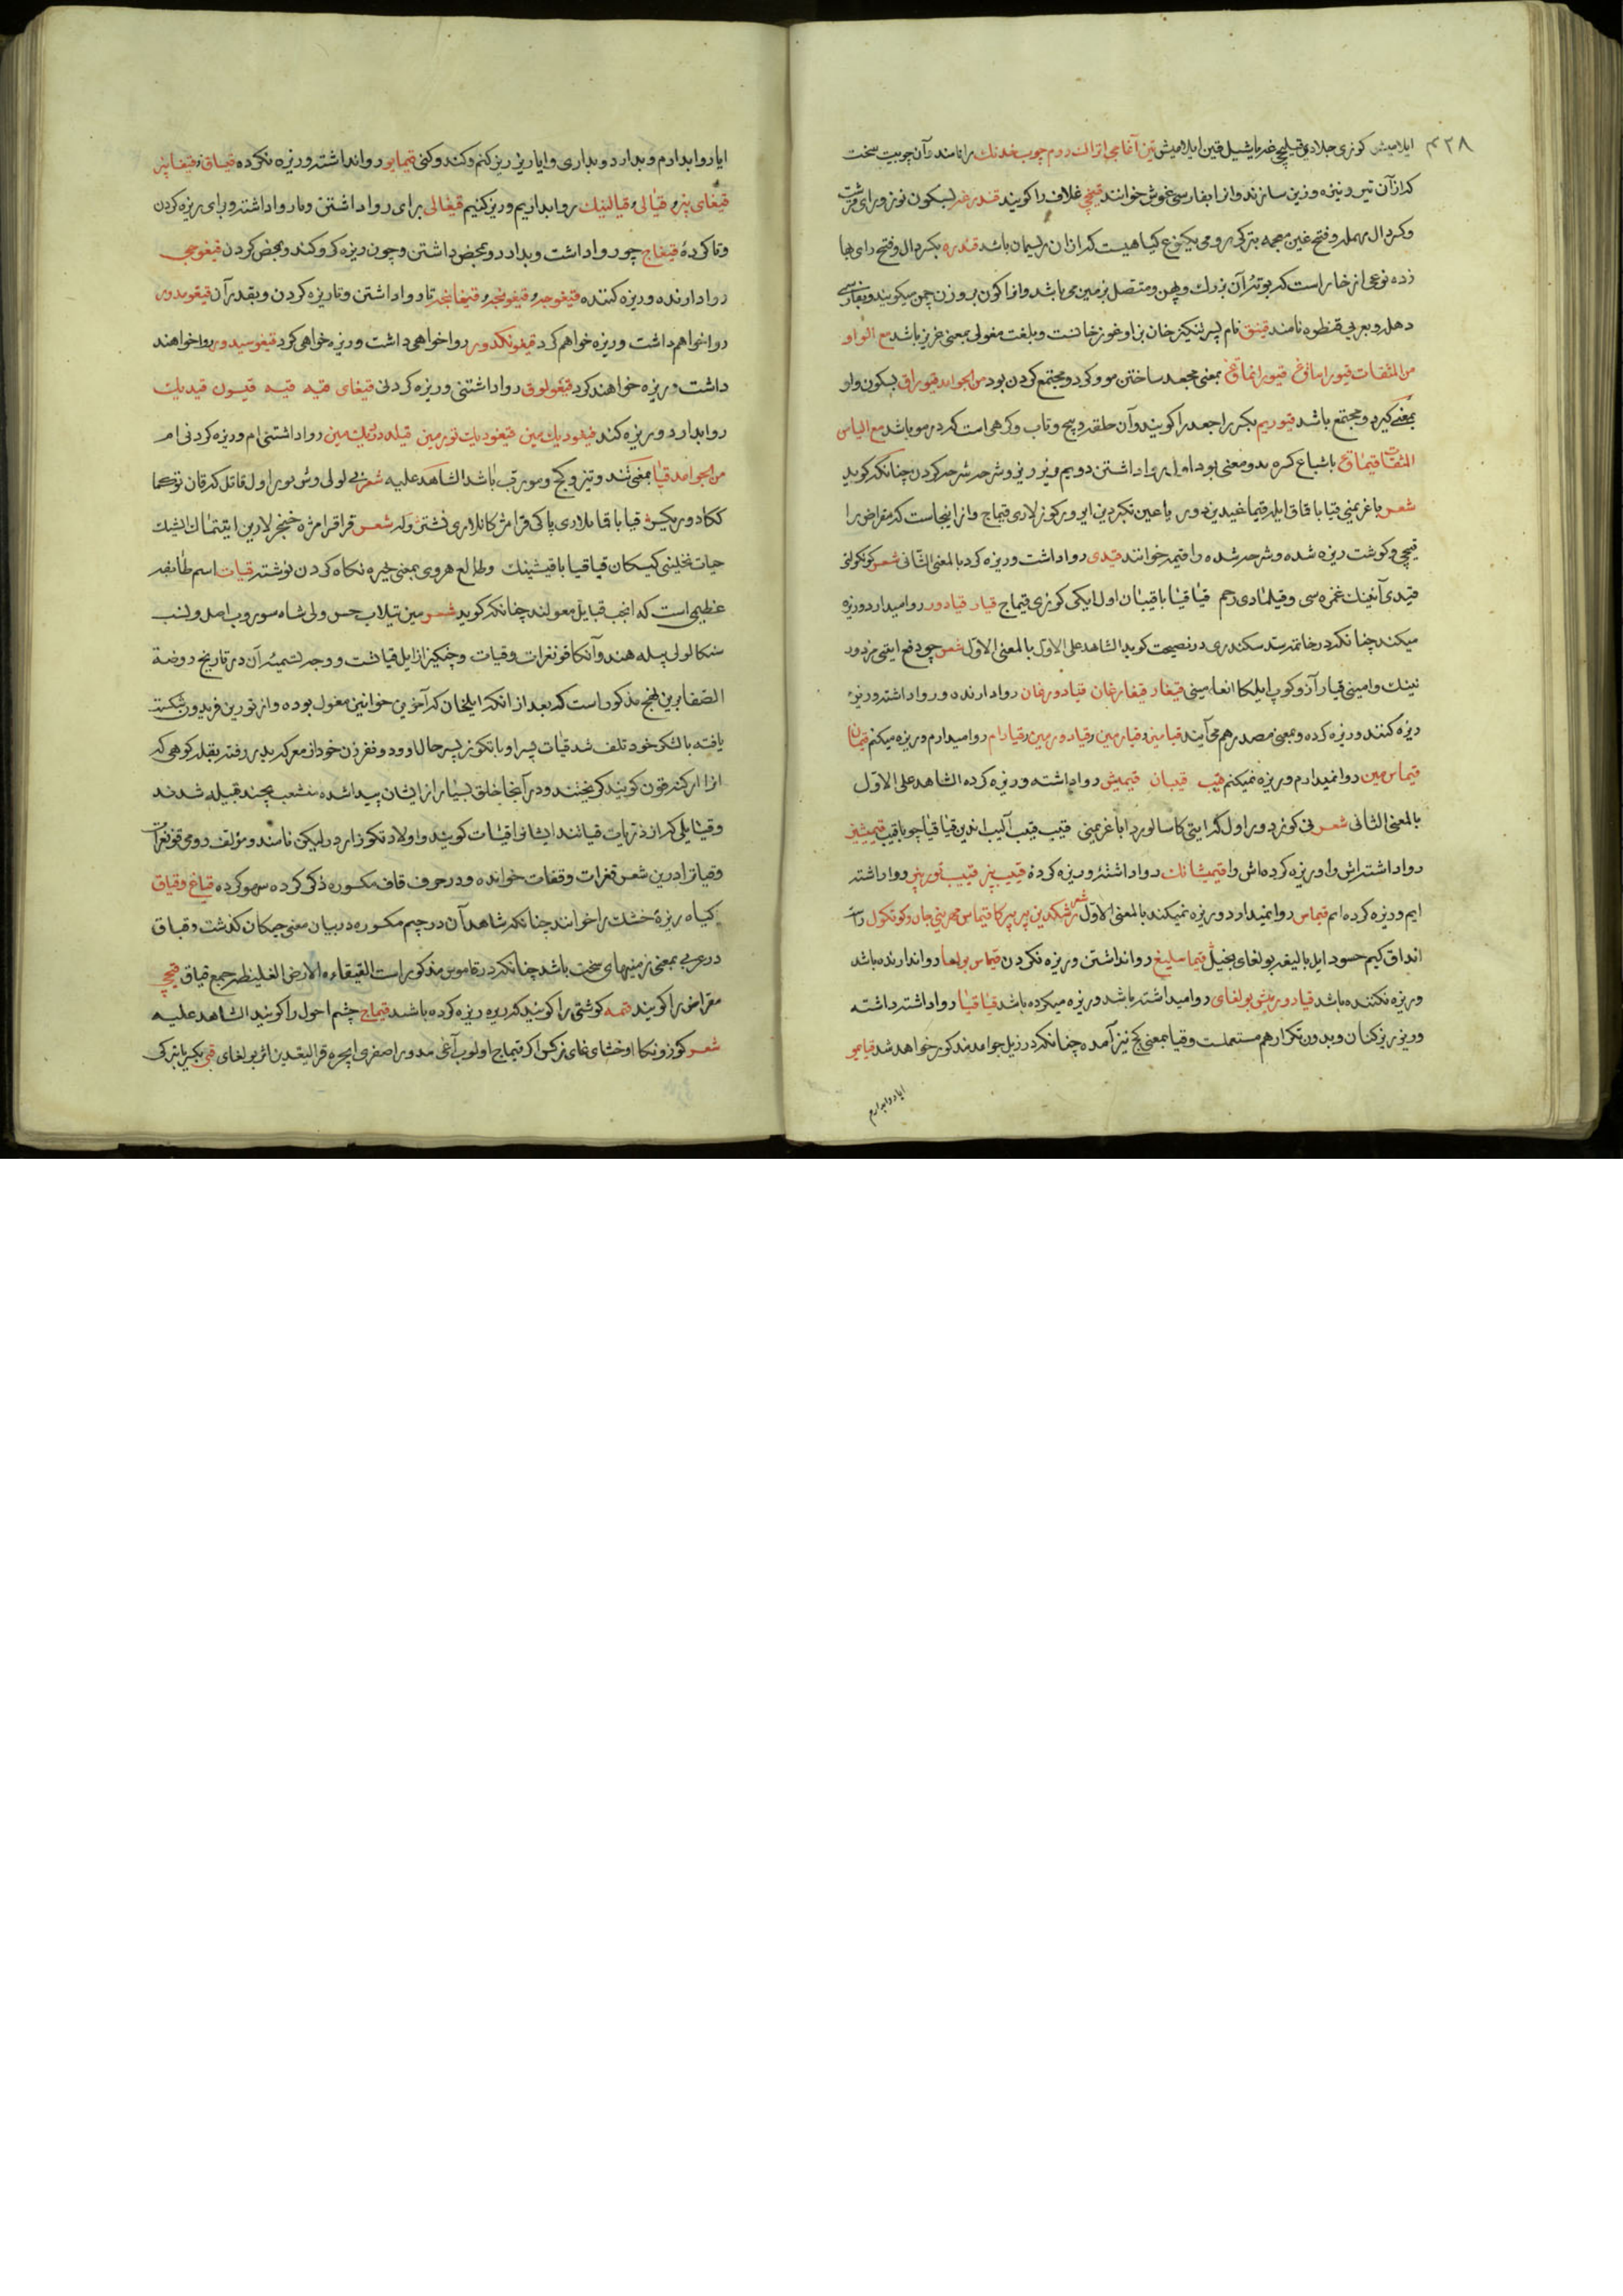 ۴۲۸
ایلامیش کوزی جلادی قیلیچی غه یاشیل قین ایلامیش قین آغاجی اتراک روم چوب خدنک را نامند و آن چوبیست سخت
که از آن تیر و نیزه و زین سازند و از ابفارسی غوش خوانند قینچی غلاف را کویند قندرغه بسکون نون و رای قرشت
و کسر دال مهمله و فتح غین معجمه بترکی رومی یکنوع کیاهیست که از ان ریسمان باشد قندره بکسر دال و فتح رای بها
زده نوعی از خار است که بوتهٔ آن بزرک و پهن و متصل بزمین می باشد و انرا کون بر وزن چمن میکویند و بفارسی
دهله و بعربی قنطوه نامند قینق نام پسر لنکیز خان بن اوغوز خانست و بلغت مغولی بمعنی عزیز باشد مع الواو
من المتفقات قیوراساغ قیوراتماق بمعنی مجعد ساختن مو و کرد و مجتمع کردن بود من الجوامد قیوراق بسکون واو
بمعنی کرد و مجتمع باشد قیوریم بکسر را جعد را کویند و آن حلقه و پیچ و تاب و کرهی است که در مو باشد مع الیاس
المتفقات قیماق باشباع کسره بدو معنی بود اول روا داشتن دویم ریز ریز و شرحه شرحه کردن چنانکه کوید
شعر باغریمنی قیا باقاق ایله قیماغیدین دور یاعین تکردین ایرور کوزلاری قیماج و از اینجاست که مقراض را
قیچی و کوشت ریزه شده و شرحه شده را قیمه خوانند قیدی روا داشت و ریزه کرد بالمعنی الثانی شعر کونکولنی
قیدی آنینک غمزه سی و قیلمادی رحم قیا قیا باقیبان اول ایکی کوزی قیماج قیار قیادور روا میدارد و ریزه
میکند چنانکه در خاتمه سد سکندری در نصیحت کوید الشاهد علی الاول بالمعنی الاول شعر چو دفع ایتمی مردور
نینک وامینی قیار آزو کوپ ایلکا انعامینی قیغار قیغارغان قیادورغان روا دارنده و روا داشته و ریزه
ریزه کننده و ریزه کرده و بمعنی مصدر هم می آیند قیامین و قیارمین و قیادورمین و قیادام روا میدارم و ریزه میکنم قیمان
قیماس مین روا نمیدارم و ریزه نمیکنم قیب قیبان قیمیش روا داشته و ریزه کرده الشاهد علی الاول
بالمعنی الثانی شعر نی کوزدور اول کم ایتی کاسالور داباغریمنی قییب قییب آلیب اندین قیا قیا چو باقیب قیمیشیز
روا داشته اش و او ریزه کرده اش وا قیمیشانک روا داشتهٔ و ریزه کردهٔ قییب بیز قییب توربیز روا داشته
ایم و ریزه کرده ایم قیماس روا نمیدارد و ریزه نمیکند بالمعنی الاول شعر رشکدین بیر بیر کا قیماس مهرینی جان و کونکول وا
انداق کیم حسود ایل بالیغه بولغای بخیل قیماسلیغ روا نداشتن و ریزه نکردن قیماس بولسا روا ندارنده باشد
و ریزه نکننده باشد قیادورمیش بولغای روا میداشته باشد و ریزه میکرده باشد قیا قیا روا داشته داشته
و ریز ریز کنان و بدون تکرار هم مستعملست و قیا بمعنی کج نیز آمده چنانکه در ذیل جوامد مذکور خواهد شد قیایمو
ایا روا بدارم
ایا روا بدارم و بدارد و بداری و ایا ریز ریز کنم و کند و کنی قیمایو روا نداشته و ریزه نکرده قیساق و قیغایز
قیغای بیز و قیالی و قیالینک روا بداریم و ریز کنیم قیغالی برای روا داشتن و تا روا داشته و برای ریزه کردن
و تا کردهٔ قیغاج چو روا داشت و بدارد و بمحض داشتن و چون ریزه کرد و کند و بمحض کردن قیغوچی
روا دارنده و ریزه کننده قیغوجه و قیغونجه و قیغانچه تا روا داشتن و تا ریزه کردن و بقدر آن قیغومدور
روا خواهم داشت و ریزه خواهم کرد قیغونکدور روا خواهی داشت و ریزه خواهی کرد قیغوسیدور روا خواهند
داشت و ریزه خواهند کرد قیغولوق روا داشتنی و ریزه کردنی قیغای قیه قیه قیسون قیدیک
روا بدارد و ریزه کند قیغودیک مین قیغودیک تورمین قیله دیک مین روا داشتنی ام و ریزه کردنی ام
من الجوامد قیا بمعنی تند و تیز و کج و مورب باشد الشاهد علیه شعر نی لولی وش بو اول قاتل که قان توکما
ککا دور کیش قیا باقسا بلادی پاکی قرا مژکانلاری نشتر وله شعر قرا قرا مژه خنجرلارین ایتمان اینک
حیات نخلینی کیسکان قیا قیا باقیشینک و طالع هروی بمعنی خیره نکاه کردن نوشته قیات اسم طائفه
عظیمی است که انجب قبایل مغولند چنانکه کوید شعر مین تیلاب حسن ولی شاه سوروب اصل و نسب
منکا لولی بیله هند و آنکا قونغرات و قیات و چنکیز از ایل قیاتست و وجه تسمیه آن در تاریخ روضة
الصفا برین نهج مذکور است که بعد از انکه ایلخان که آخرین خوانین مغول بوده و از تور بن فریدون شکست
یافته با لشکر خود تلف شد قیات پسر او با تکوز پسر خال او و دو نفر زن خود از معرکه بدر رفته بقله کوهی که
انرا ارکنه قون کویند کریختند و در آنجا خلق بسیار از ایشان پیدا شده منشعب بچند قبیله شدند
و قبایلی که از ذریات قیاتند ایشانرا قیات کویند و اولاد تکوز را درلیکن نامند و مؤلف رومی قونغرات
و قیاترا درین شعر قنرات وقفات خوانده و در حرف قاف مکسوره ذکر کرده سهو کرده قیاغ و قیاق
کیاه ریزهٔ خشک را خوانند چنانکه شاهد آن در چیم مکسوره در بیان معنی جیکان کذشت و قیاق
در عربی بمعنی زمینهای سخت باشد چنانکه در قاموس مذکور است القیقاءه الارض الغلیظه جمع قیاق قیچی
مقراض را کویند قیمه کوشتی را کویند که ریزه ریزه کرده باشند قیماج چشم احول را کویند الشاهد علیه
شعر کوزونکا اوخشای غای نرکس اکر قیماج اولوب آغی مدور اصفری ایچره قرالیغدین اثر بولغای قی بکسر بترکی